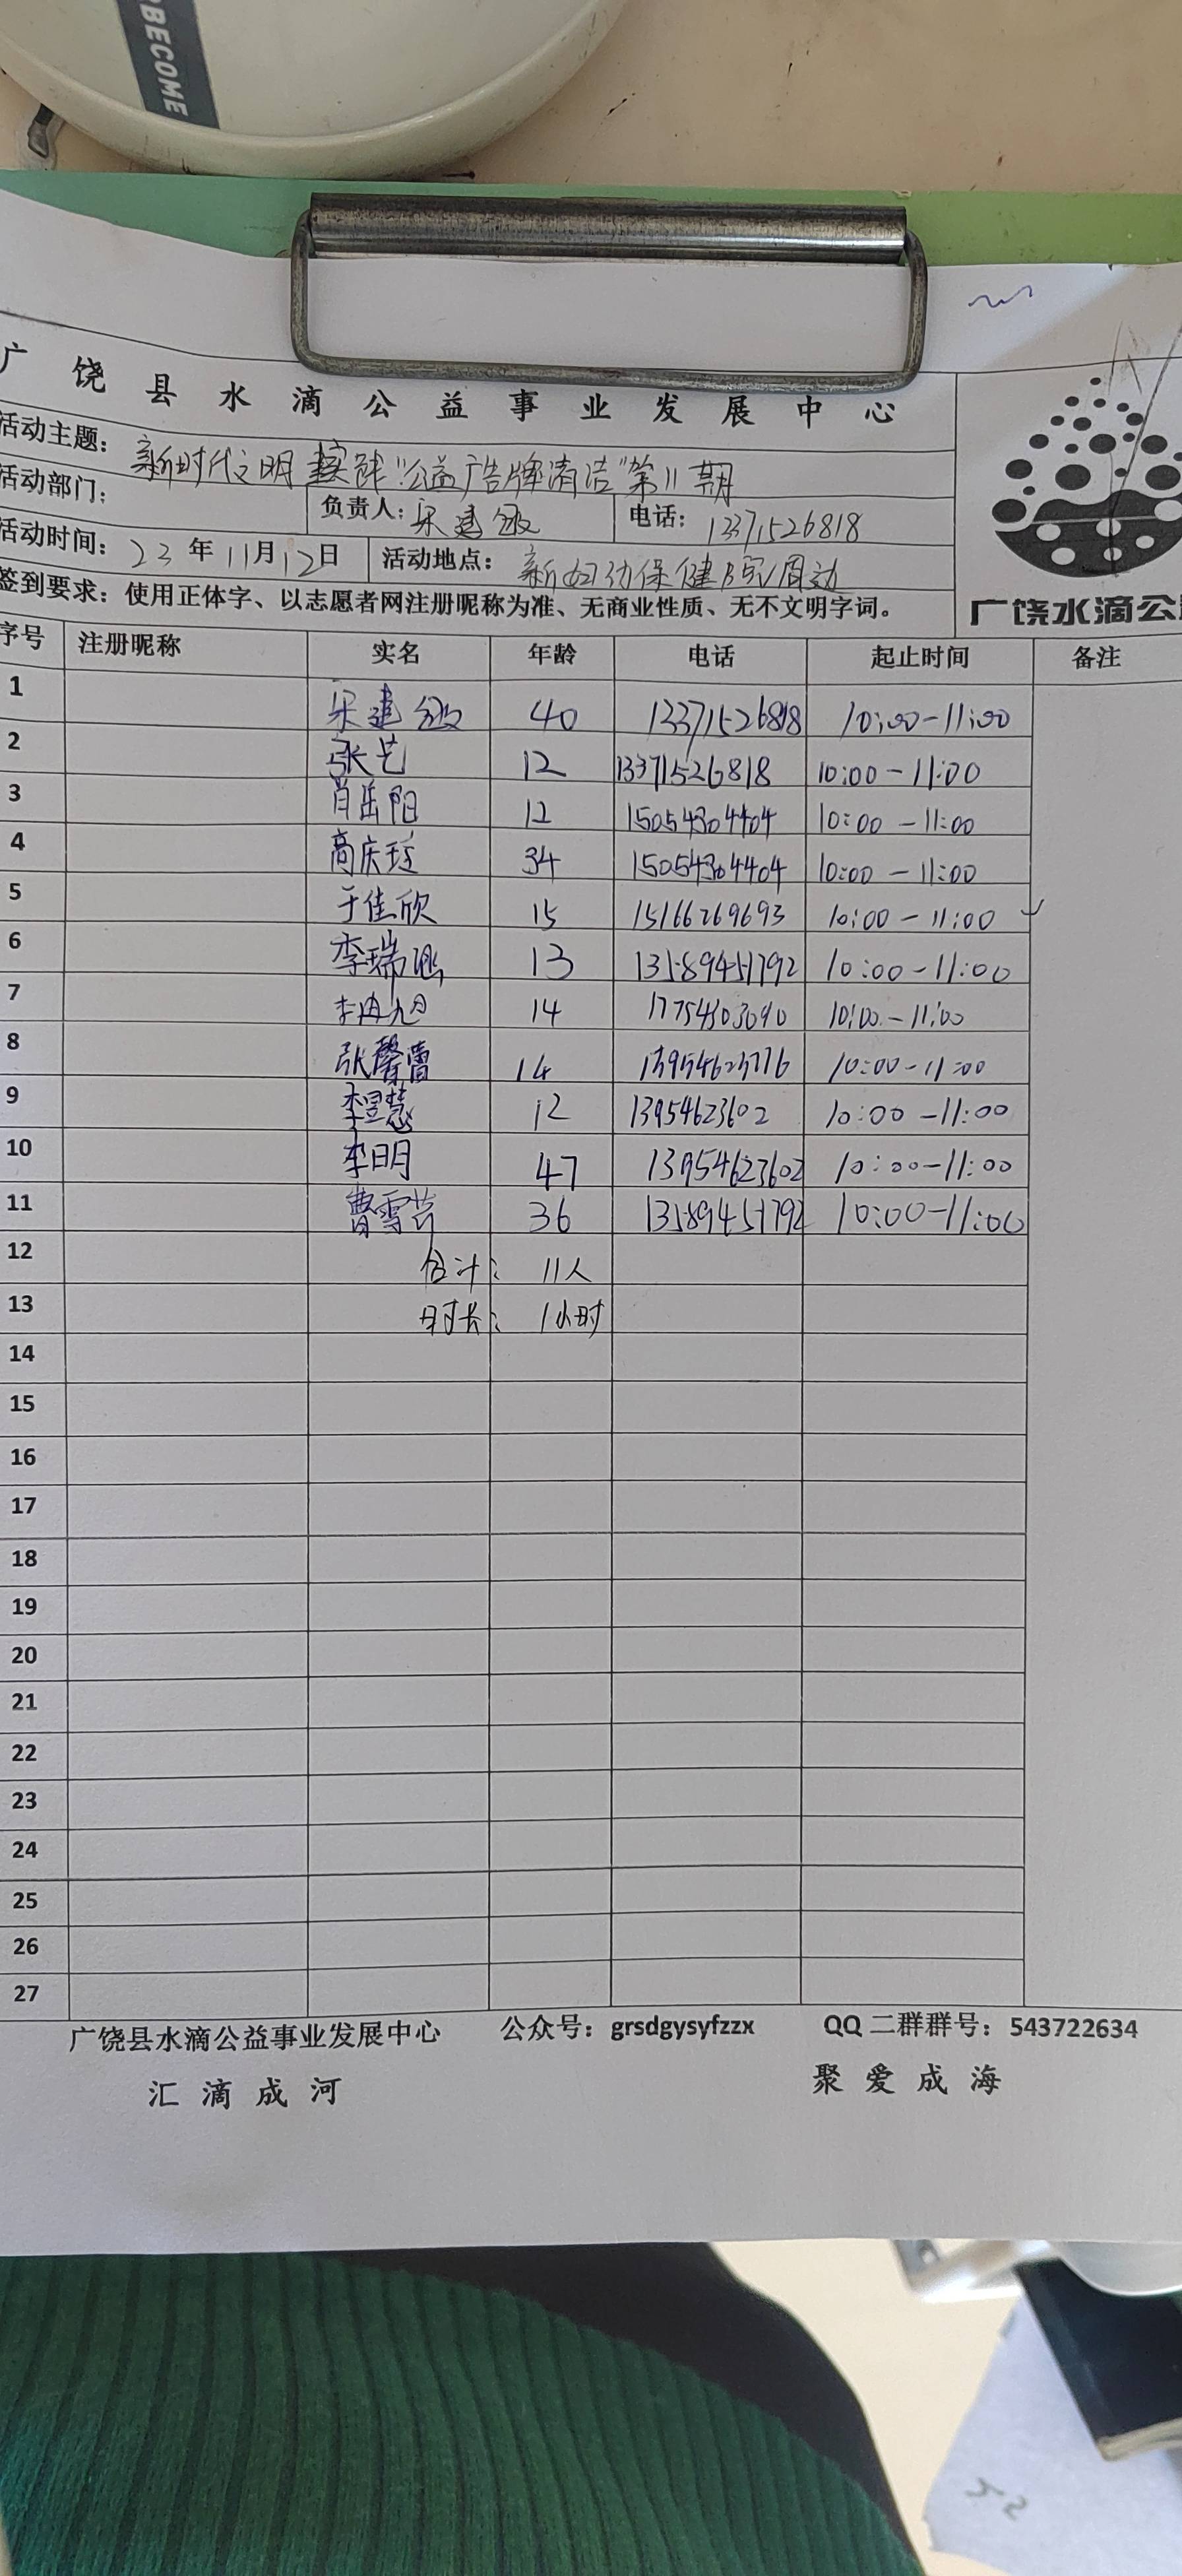 BECOME
广饶县水滴公益事业发展中心
活动主题： 新时代文明实践“公益广告牌清洁”第11期
活动部门： 负责人： 建敏 电话： 13371526818
活动时间： 23年11月12日 活动地点： 新妇幼保健院周边
签到要求：使用正体字、以志愿者网注册昵称为准、无商业性质、无不文明字词。
广饶水滴公
序号 注册昵称 实名 年龄 电话 起止时间 备注
1 建敏 40 13371526818 10:00-11:00
2 张艺 12 13371526818 10:00-11:00
3 肖岳阳 12 15054304404 10:00-11:00
4 高庆 34 15054304404 10:00-11:00
5 于佳欣 15 15166269693 10:00-11:00
6 李瑞涵 13 13589451792 10:00-11:00
7 李冉旭 14 17754303090 10:00-11:00
8 张馨蕾 14 10:00-11:00
9 李昱慧 12 13954623602 10:00-11:00
10 李明 47 13954623602 10:00-11:00
11 曹雪芹 36 13589451792 10:00-11:00
12 合计： 11人
13 时长： 1小时
14
15
16
17
18
19
20
21
22
23
24
25
26
27
广饶县水滴公益事业发展中心 公众号：grsdgysyfzzx QQ二群群号：543722634
汇滴成河 聚爱成海